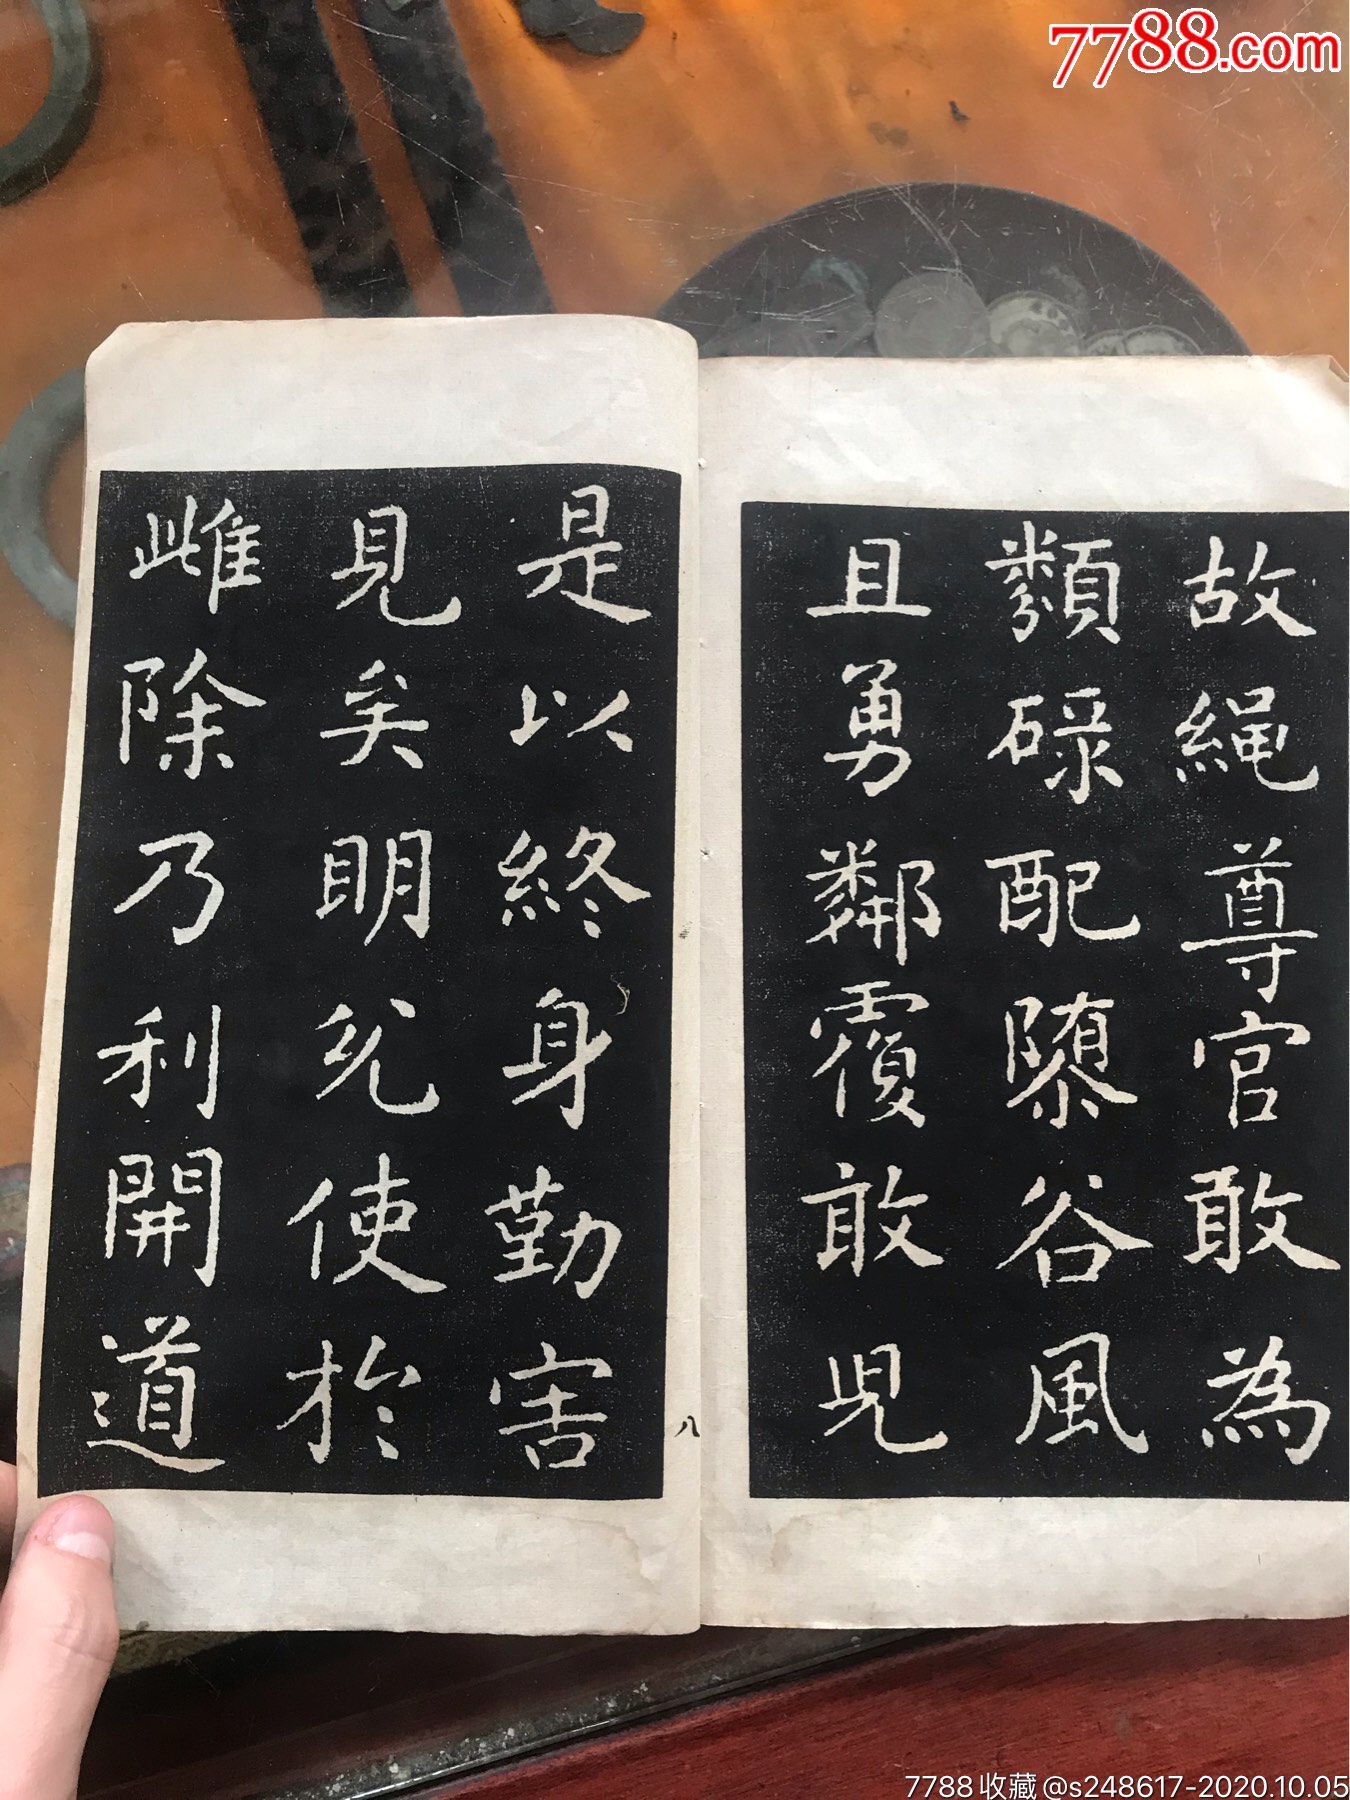 7788.com
故繩尊官敢為
類碌配谷風
且勇鄰覆敢
是以終身勤害
見矣明使於
雌除乃利開道
八
7788收藏@s248617-2020.10.05